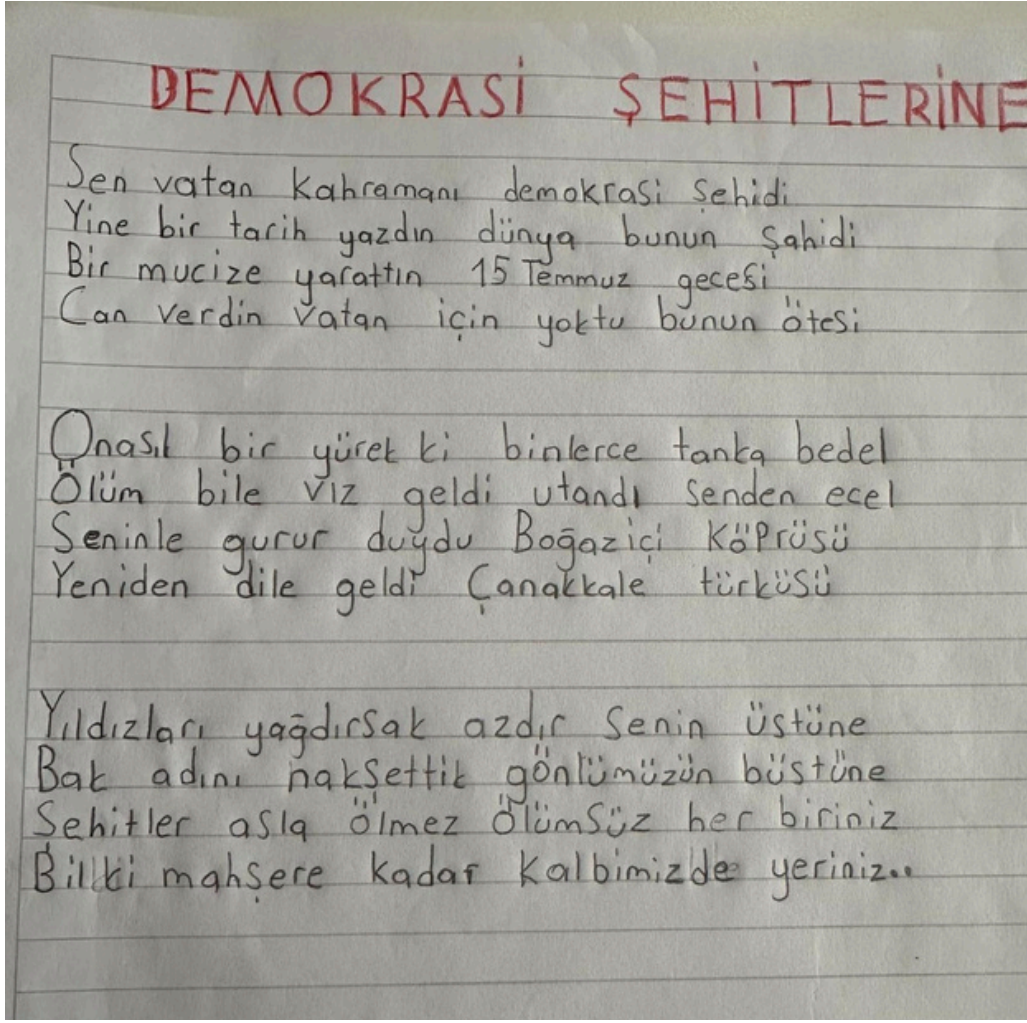 DEMOKRASİ ŞEHİTLERİNE
Sen vatan kahramanı demokrasi şehidi
Yine bir tarih yazdın dünya bunun şahidi
Bir mucize yarattın 15 Temmuz gecesi
Can verdin vatan için yoktu bunun ötesi
Onasıl bir yürek ki binlerce tanka bedel
Ölüm bile vız geldi utandı senden ecel
Seninle gurur duydu Boğaziçi Köprüsü
Yeniden dile geldi Çanakkale türküsü
Yıldızları yağdırsak azdır senin üstüne
Bak adını nakşettik gönlümüzün büstüne
Şehitler asla ölmez ölümsüz her biriniz
Bilki mahşere kadar kalbimizde yeriniz..